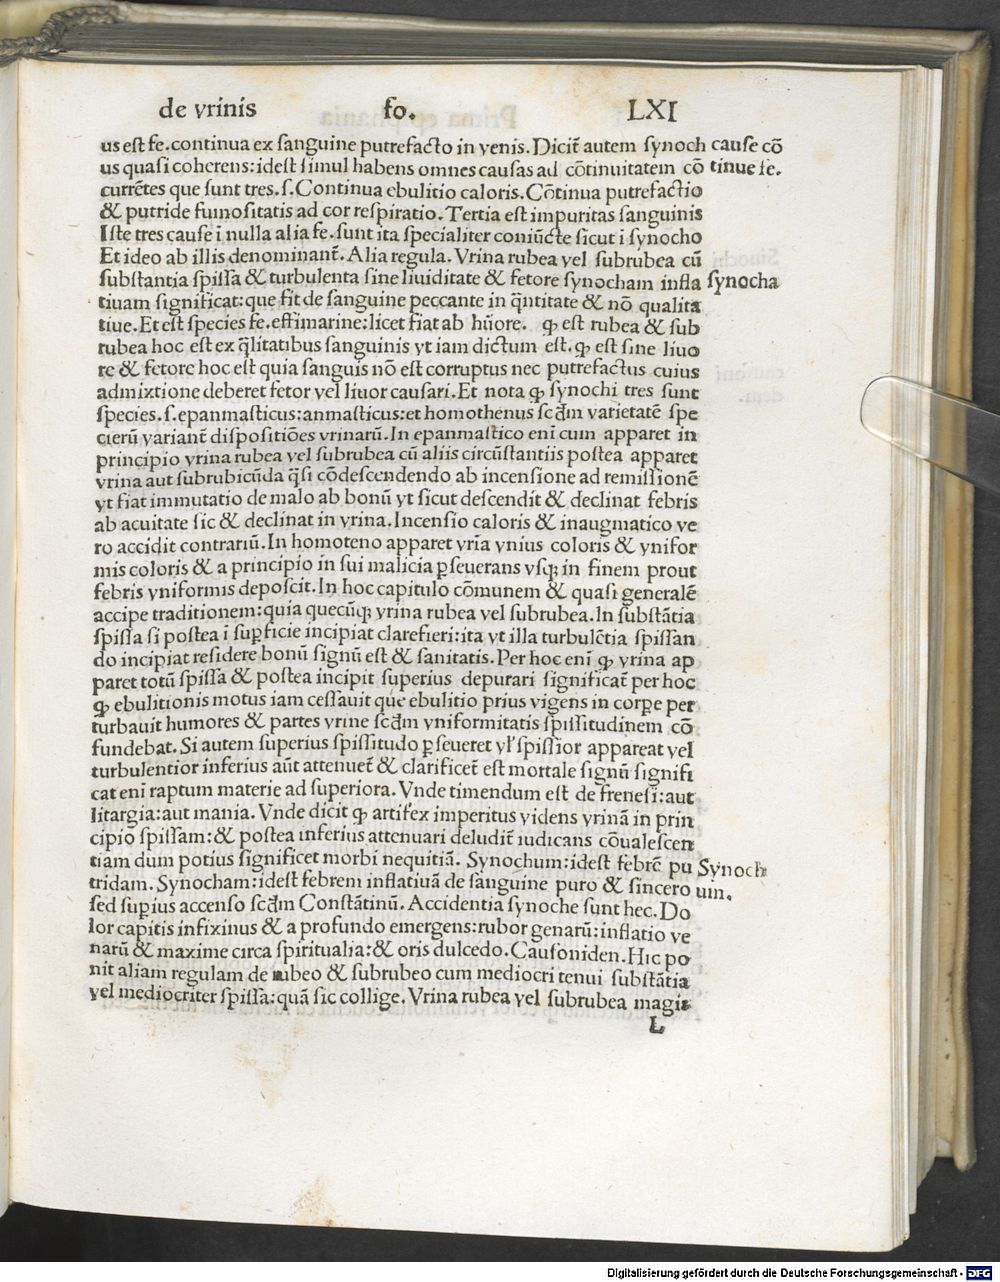 de vrinis fo. LXI
us est fe. continua ex sanguine putrefacto in venis. Dicit̃ autem synoch
us quasi coherens: idest simul habens omnes causas ad cõtinuitatem cõ
currẽtes que sunt tres. s. Continua ebulitio caloris. Cõtinua putrefactio
& putride fumositatis ad cor respiratio. Tertia est impuritas sanguinis
Iste tres cause ĩ nulla alia fe. sunt ita specialiter coniũcte sicut i synocho
Et ideo ab illis denominant̃. Alia regula. Vrina rubea vel subrubea cũ
substantia spissa & turbulenta sine liuiditate & fetore synocham infla
tiuam significat: que fit de sanguine peccante in q̃ntitate & nõ qualita
tiue. Et est species fe. effimarine: licet fiat ab hũore. ꝙ est rubea & sub
rubea hoc est ex q̃litatibus sanguinis vt iam dictum est. ꝙ est sine liuo
re & fetore hoc est quia sanguis nõ est corruptus nec putrefactus cuius
admixtione deberet fetor vel liuor causari. Et nota ꝙ synochi tres sunt
species. s. epanmasticus: anmasticus: et homothenus scd̃m varietatẽ spe
cierũ variant̃ dispositiões vrinarũ. In epanmastico eni̅ cum apparet in
principio vrina rubea vel subrubea cũ aliis circũstantiis postea apparet
vrina aut subrubicũda q̃si cõdescendendo ab incensione ad remissionẽ
vt fiat immutatio de malo ab bonũ vt sicut descendit & declinat febris
ab acuitate sic & declinat in vrina. Incensio caloris & inaugmatico ve
ro accidit contrariũ. In homoteno apparet vrĩa vnius coloris & vnifor
mis coloris & a principio in sui malicia ꝑseuerans vsqꝫ in finem prout
febris vniformis deposcit. In hoc capitulo cõmunem & quasi generalẽ
accipe traditionem: quia quecũqꝫ vrina rubea vel subrubea. In substãtia
spissa si postea ĩ suꝑficie incipiat clarefieri: ita vt illa turbulẽtia spissan
do incipiat residere bonũ signũ est & sanitatis. Per hoc eni̅ ꝙ vrina ap
paret totũ spissa & postea incipit superius depurari significat̃ per hoc
ꝙ ebulitionis motus iam cessauit que ebulitio prius vigens in corpe per
turbauit humores & partes vrine scd̃m vniformitatis spissitudinem cõ
fundebat. Si autem superius spissitudo ꝑseueret vl' spissior appareat vel
turbulentior inferius aũt attenuet̃ & clarificet̃ est mortale signũ signifi
cat eni̅ raptum materie ad superiora. Vnde timendum est de frenesi: aut
litargia: aut mania. Vnde dicit ꝙ artifex imperitus videns vrinã in prin
cipio spissam: & postea inferius attenuari deludit̃ iudicans cõualescen
tiam dum potius significet morbi nequitiã. Synochum: idest febrẽ pu
tridam. Synocham: idest febrem inflatiuã de sanguine puro & sincero
sed suꝑius accenso scd̃m Constãtinũ. Accidentia synoche sunt hec. Do
lor capitis infixinus & a profundo emergens: rubor genarũ: inflatio ve
narũ & maxime circa spiritualia: & oris dulcedo. Causoniden. Hic po
nit aliam regulam de rubeo & subrubeo cum mediocri tenui substãtia
vel mediocriter spissa: quã sic collige. Vrina rubea vel subrubea magis
L
cause cõ
tinue fe.
synocha
Synoch
um.
Digitalisierung gefördert durch die Deutsche Forschungsgemeinschaft - DFG